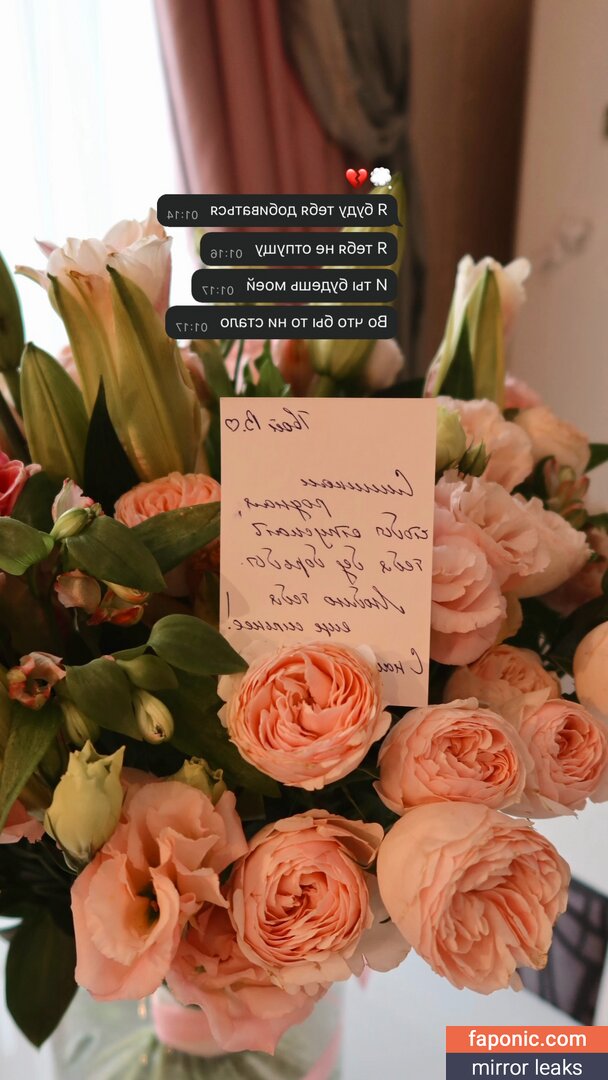 Я буду тебя добиваться 01:14
Я тебя не отпущу 01:16
И ты будешь моей 01:17
Во что бы то ни стало 01:17
Твой В.♡
Слишком
родная,
чтобы отпускать
тебя без борьбы.
Люблю тебя
еще сильнее!
С
faponic.com
mirror leaks